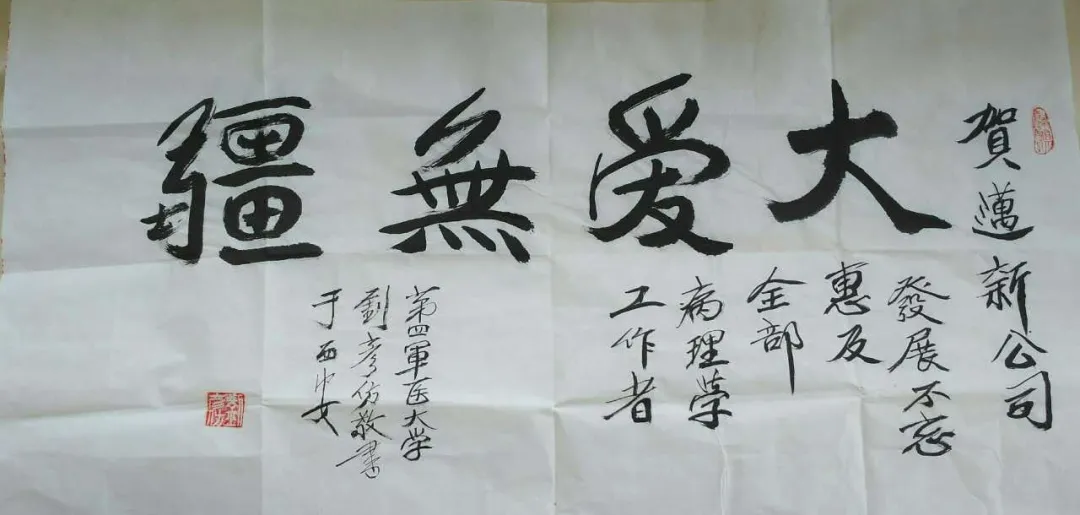 大爱無疆
賀邁新公司
發展不忘
惠及
全部
病理学
工作者
第四軍医大学
劉彦仿敬書
于西安